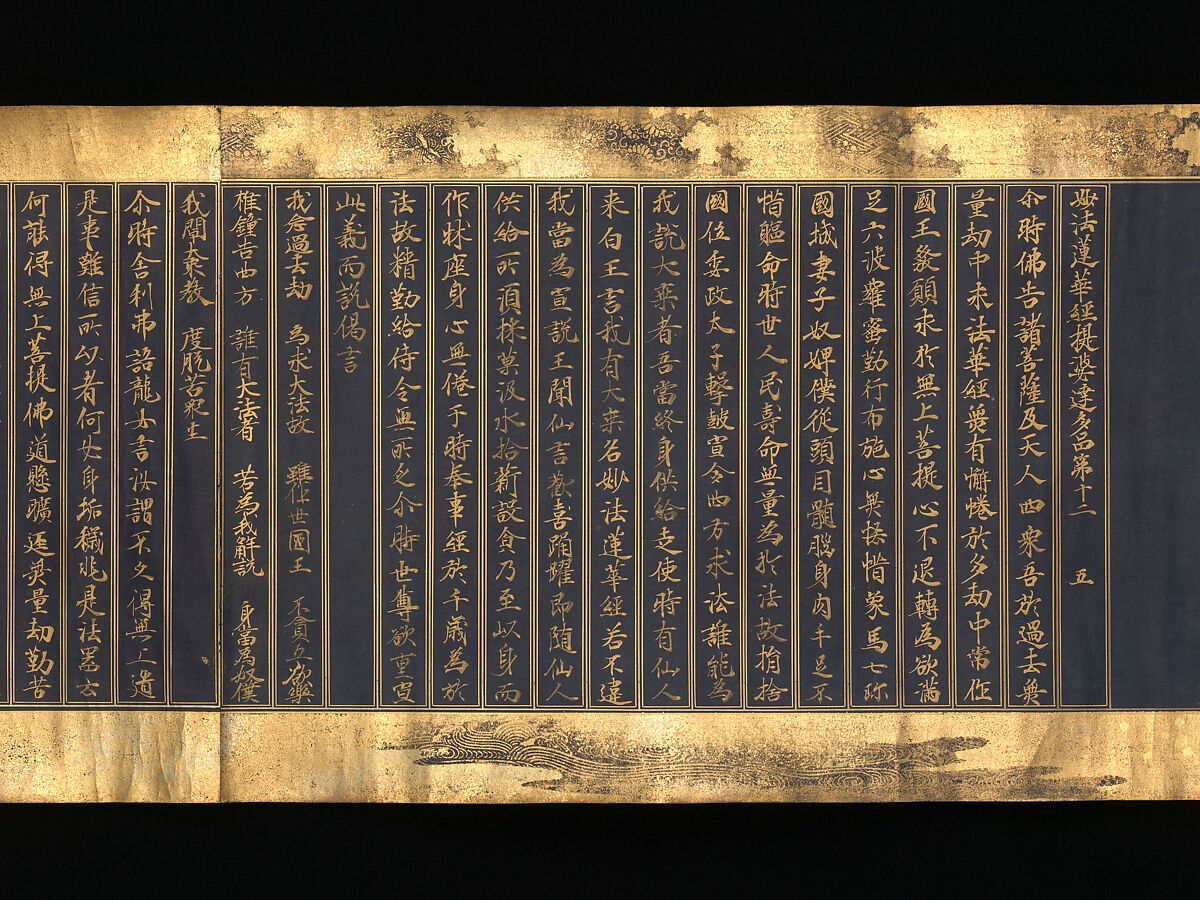 妙法蓮華經提婆達多品第十二　五
尒時佛告諸菩薩及天人四衆吾於過去無
量劫中求法華經無有懈惓於多劫中常作
國王發願求於無上菩提心不退轉為欲滿
足六波羅蜜勤行布施心無悋惜象馬七珎
國城妻子奴婢僕從頭目髓腦身肉手足不
惜軀命時世人民壽命無量為於法故捐捨
國位委政太子擊皷宣令四方求法誰能為
我說大乘者吾當終身供給走使時有仙人
来白王言我有大乘名妙法蓮華經若不違
我當為宣說王聞仙言歡喜踊躍即随仙人
供給所湏採菓汲水拾薪設食乃至以身而
作牀座身心無倦于時奉事經於千歲為於
法故精勤給侍令無所乏尒時世尊欲重宣
此義而說偈言
我念過去劫　為求大法故　雖作世國王　不貪五欲樂
椎鐘告四方　誰有大法者　若為我解說　身當為奴僕
我聞乘教　度脫苦衆生
尒時舍利弗語龍女言汝謂不久得無上道
是事難信所以者何女身垢穢非是法器云
何能得無上菩提佛道懸曠逕無量劫勤苦